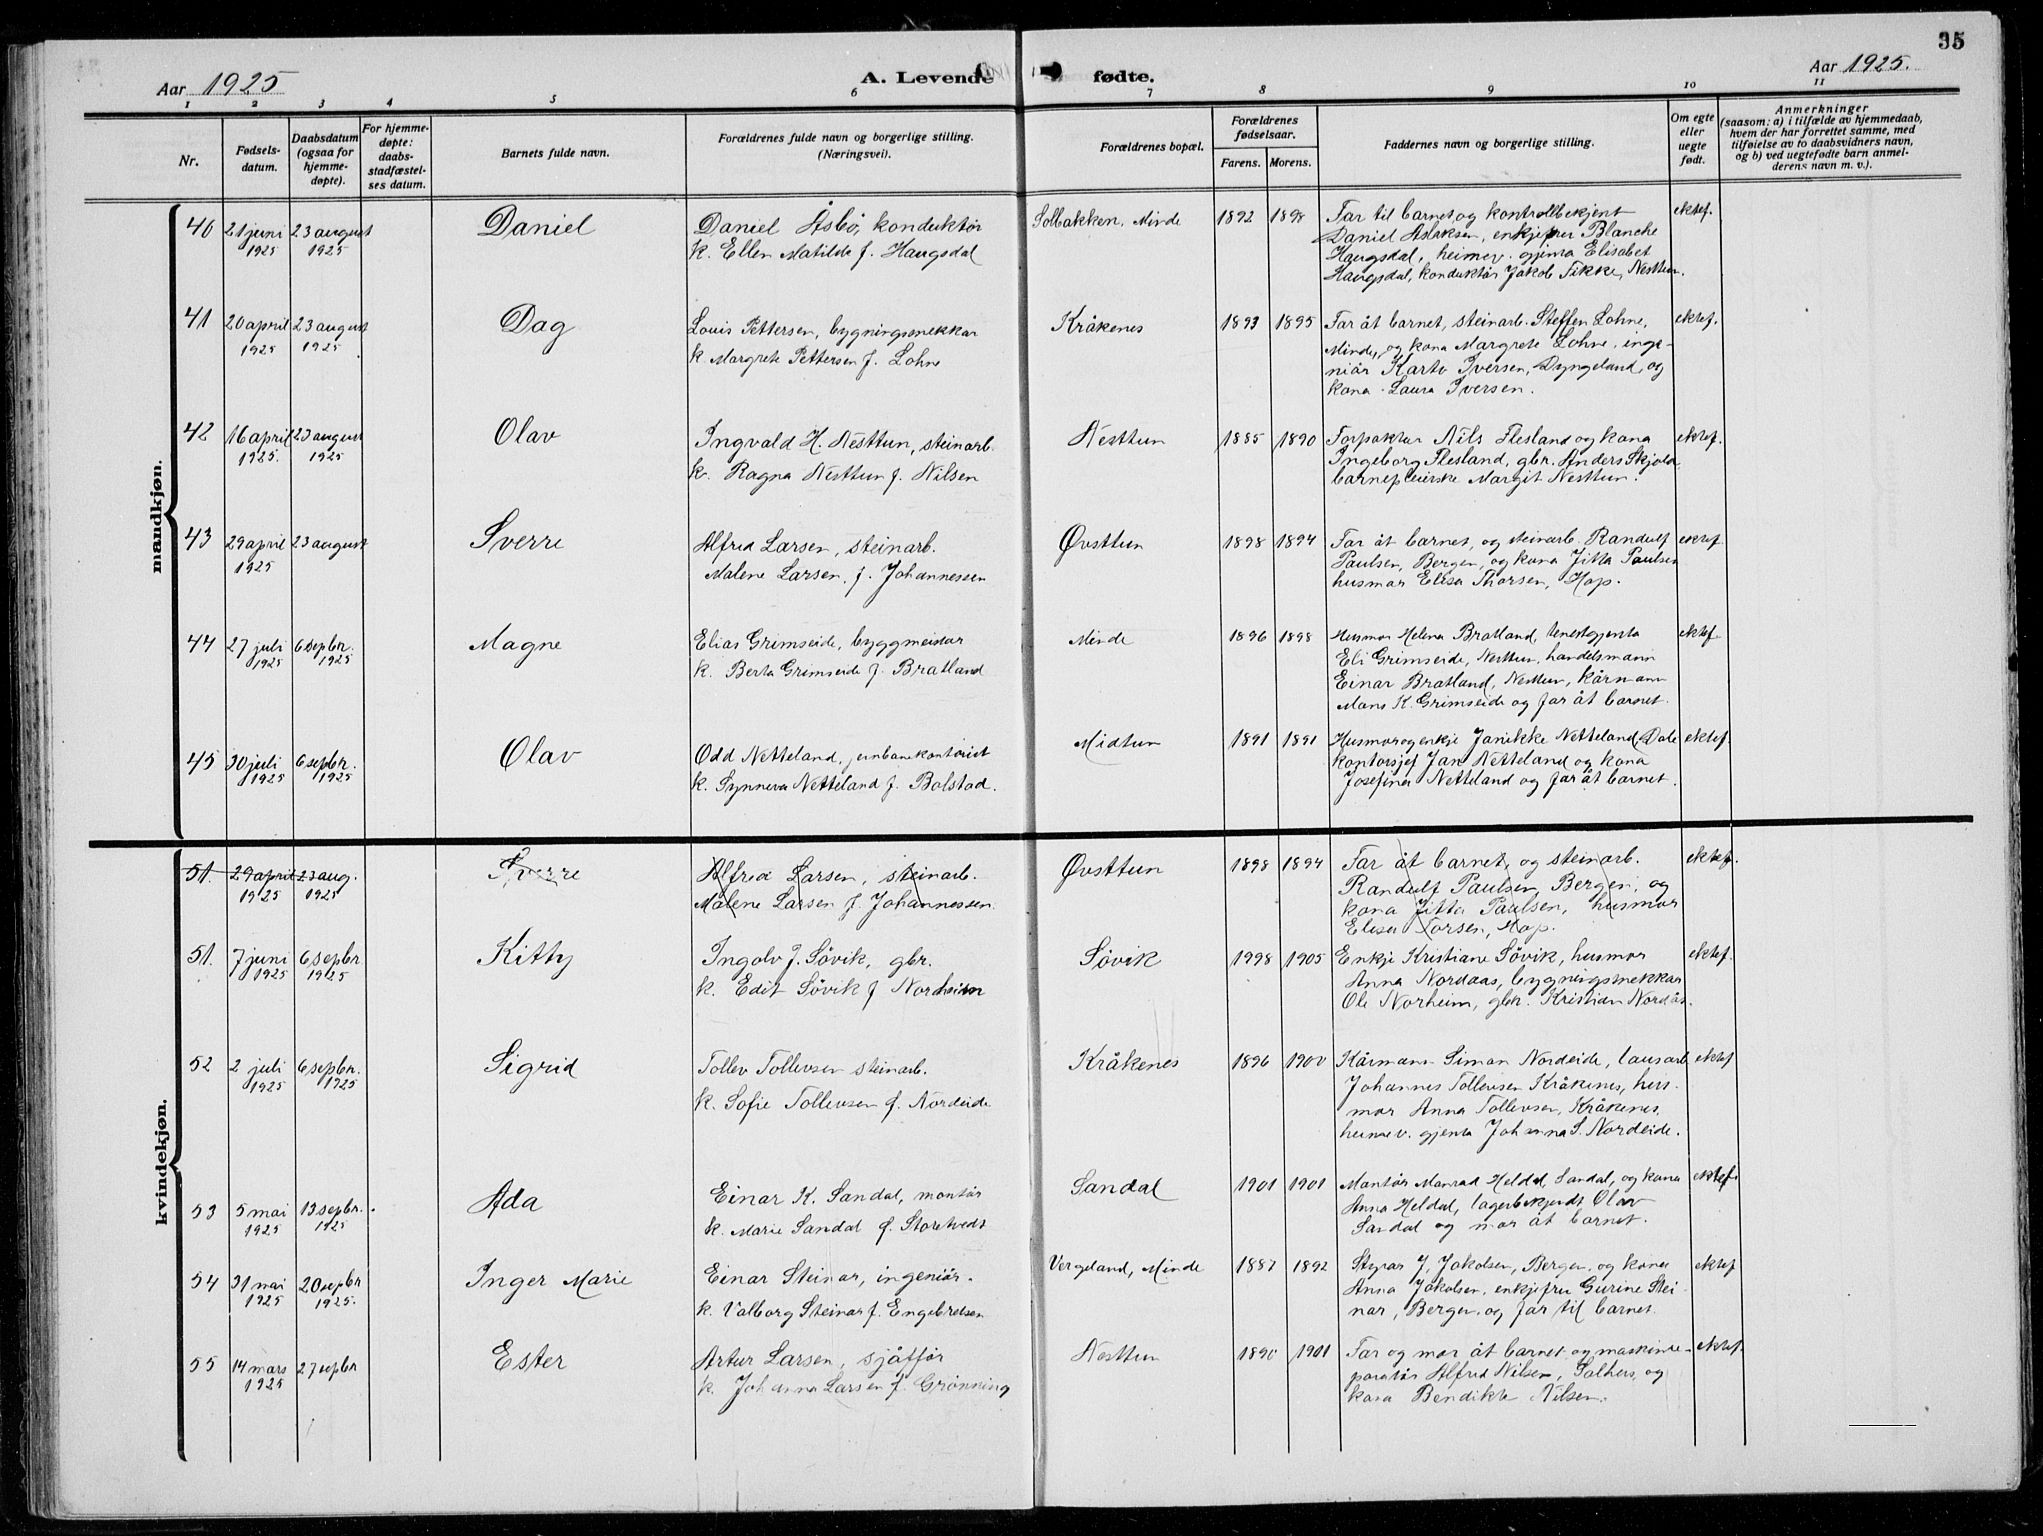 35
Aar 1925
A. Levende fødte.
Aar 1925.
1 2 3 4 5 6 7 8 9 10 11
Nr.
Fødsels-
datum.
Daabsdatum
(ogsaa for
hjemme-
døpte).
For hjemme-
døpte:
daabs-
stadfæstel-
ses datum.
Barnets fulde navn.
Forældrenes fulde navn og borgerlige stilling.
(Næringsvei).
Forældrenes bopæl.
Forældrenes
fødselsaar.
Farens. Morens.
Faddernes navn og borgerlige stilling.
Om egte
eller
uegte
født.
Anmerkninger
(saasom: a) i tilfælde av hjemmedaab,
hvem der har forrettet samme, med
tilføielse av to daabsvidners navn,
og b) ved uegtefødte barn anmel-
derens navn m. v.).
mandkjøn.
40 21 juni 23 august Daniel Daniel Åsbø, konduktør Solbakken, Minde 1892 1898 Far til barnet og kontrollbetjent ektef.
1925 1925 k. Ellen Matilde f. Haugsdal Daniel Aslaksen, enkjefru Blanche
Haugsdal, heimev. gjenta Elisabet
Haugsdal, konduktør Jakob Fikke, Nesttun.
41 20 april 23 august Dag Louis Pettersen, bygningssnekkar Kråkenes 1893 1895 Far åt barnet, steinarb. Steffen Lohne, ektef.
1925 1925 k. Margrete Pettersen f. Lohne Minde, og kona Margrete Lohne, inge-
niør Karto Iversen, Dyngeland, og
kona Laura Iversen.
42 16 april 23 august Olav Ingvald H. Nesttun, steinarb. Nesttun 1885 1890 Forpaktar Nils Flesland og kona ektef.
1925. 1925 k. Ragna Nesttun f. Nilsen Ingeborg Flesland, gbr. Anders Skjold
barnepleierske Margit Nesttun.
43 29 april 23 august Sverre Alfred Larsen, steinarb. Øvsttun 1898 1894 Far åt barnet, og steinarb. Randulf ektef.
1925 Malene Larsen, f. Johannessen Paulsen, Bergen, og kona Jitta Paulsen
husmor Elisa Thorsen, Hop.
44 27 juli 6 sepbr. Magne Elias Grimseide, byggmeistar Minde 1896 1898 Husmor Helena Bratland, tenestgjenta ektef.
1925 1925 k. Berta Grimseide f. Bratland Eli Grimseide, Nesttun, handelsmann
Einar Bratland, Nesttun, kårmann
Mons K. Grimseide og far åt barnet.
45 30 juli 6 sepbr. Olav Odd Netteland, jernbanekontorist Midtun 1891 1891 Husmor og enkje Janikke Netteland, Dale ektef.
1925 1925 k. Synneva Netteland f. Bolstad. kontorsjef Jan Netteland og kona
Josefina Netteland og far åt barnet.
kvindekjøn.
51. 29 april 23 aug. Sverre Alfred Larsen, steinarb. Øvsttun 1898 1894 Far åt barnet, og steinarb. ektef.
1925 1925 Malene Larsen f. Johannessen. Randulf Paulsen, Bergen, og
kona Jitta Paulsen, husmor
Elisa Torsen, Hop.
51. 7 juni 6 sepbr Kitty Ingolv J. Søvik, gbr. Søvik 1998 1905 Enkje Kristiane Søvik, husmor ektef.
1925 1925 k. Edit Søvik f Norheim Anna Nordaas, bygningssnekkar
Ole Norheim, gbr. Kristian Nordås.
52 2 juli 6 sepbr. Sigrid Tollev Tollevsen steinarb. Kråkenes 1896 1900 Kårmann Simon Nordeide, lausarb ektef
1925 1925 k. Sofie Tollevsen f. Nordeide Johannes Tollevsen Kråkenes, hus-
mor Anna Tollevsen, Kråkenes,
heimev. gjenta Johanna S. Nordeide.
53 5 mai 13 sepbr. Ada Einar K. Sandal, montør Sandal 1901 1901 Montør Monrad Heldal Sandal, og kona ektef.
1925 1925 k. Marie Sandal f. Storetvedt Anna Heldal, lagerbetjendt Olav
Sandal og mor åt barnet.
54 31 mai 20 sepbr Inger Marie Einar Steinar, ingeniør. Vergeland, Minde 1887 1892 Styrar J. Jakobsen, Bergen, og kona ektef
1925 1925. k. Valborg Steinar f. Engebretsen Anna Jakobsen, enkjefru Gurine Stei-
nar, Bergen, og far til barnet.
55 14 mars 27 sepbr Ester Artur Larsen, sjåffør Nesttun 1890 1901 Far og mor åt barnet og maskinre- ektef.
1925 k. Johanna Larsen f. Grønning paratør Alfred Nilsen, Solheis, og
kona Bendikte Nilsen.